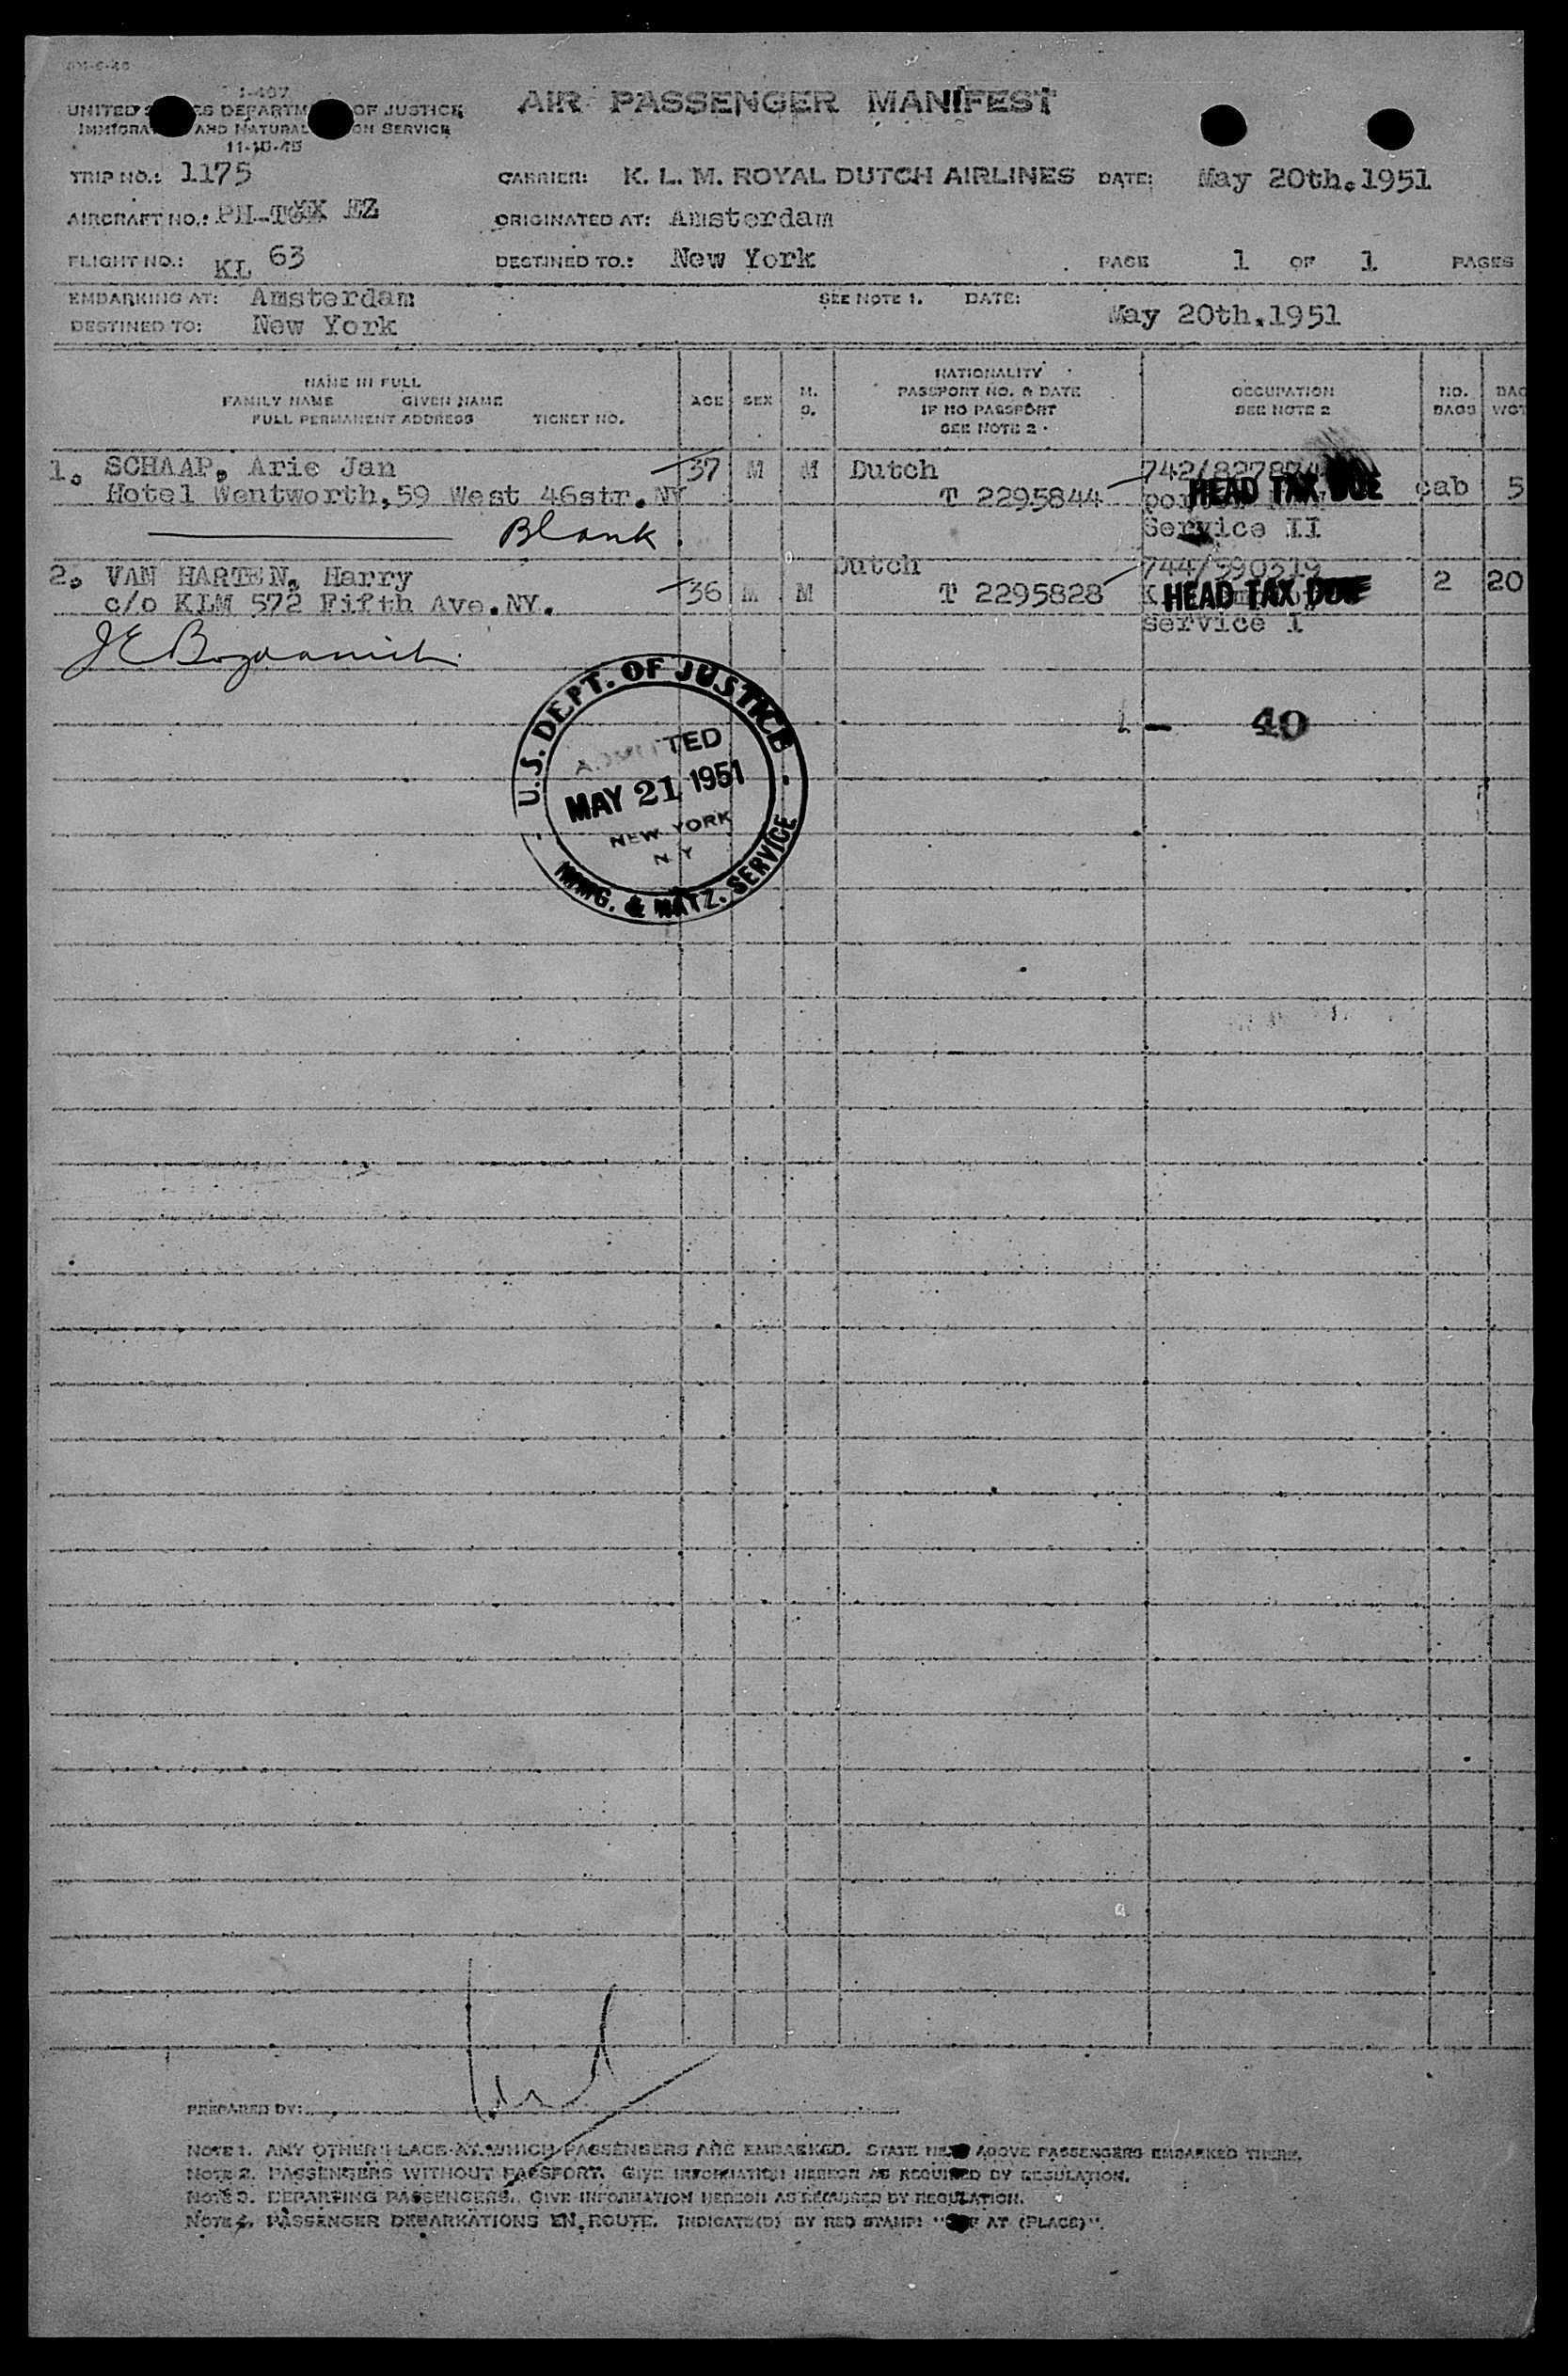 I-407
UNITED STATES DEPARTMENT OF JUSTICE
IMMIGRATION AND NATURALIZATION SERVICE
11-10-45
AIR PASSENGER MANIFEST
TRIP NO.: 1175 CARRIER: K. L. M. ROYAL DUTCH AIRLINES DATE: May 20th.1951
AIRCRAFT NO.: PH-T EZ ORIGINATED AT: Amsterdam
FLIGHT NO.: KL 63 DESTINED TO.: New York PAGE 1 OF 1 PAGES
EMBARKING AT: Amsterdam SEE NOTE 1. DATE: May 20th.1951
DESTINED TO: New York
NAME IN FULL
FAMILY NAME GIVEN NAME
FULL PERMANENT ADDRESS TICKET NO.
AGE SEX M. S.
NATIONALITY
PASSPORT NO. & DATE
IF NO PASSPORT
SEE NOTE 2
OCCUPATION
SEE NOTE 2
NO. BAGS
BAG WGT
1. SCHAAP, Arie Jan 37 M M Dutch
Hotel Wentworth,59 West 46str.NY T 2295844 HEAD TAX DUE cab 5
Blank. Service II
2. VAN HARTEN, Harry 36 M M Dutch 744/590319
c/o KLM 572 Fifth Ave.NY. T 2295828 HEAD TAX DUE 2 20
service I
U.S. DEPT. OF JUSTICE
ADMITTED
MAY 21 1951
NEW YORK
N Y
IMMIG. & NATZ. SERVICE
- 40
PREPARED BY:
NOTE 1. ANY OTHER PLACE AT WHICH PASSENGERS ARE EMBARKED. STATE HERE ABOVE PASSENGERS EMBARKED THERE.
NOTE 2. PASSENGERS WITHOUT PASSPORT. GIVE INFORMATION HEREON AS REQUIRED BY REGULATION.
NOTE 3. DEPARTING PASSENGERS. GIVE INFORMATION HEREON AS REQUIRED BY REGULATION.
NOTE 4. PASSENGER DEBARKATIONS EN ROUTE. INDICATE(D) BY RED STAMP: "OFF AT (PLACE)".